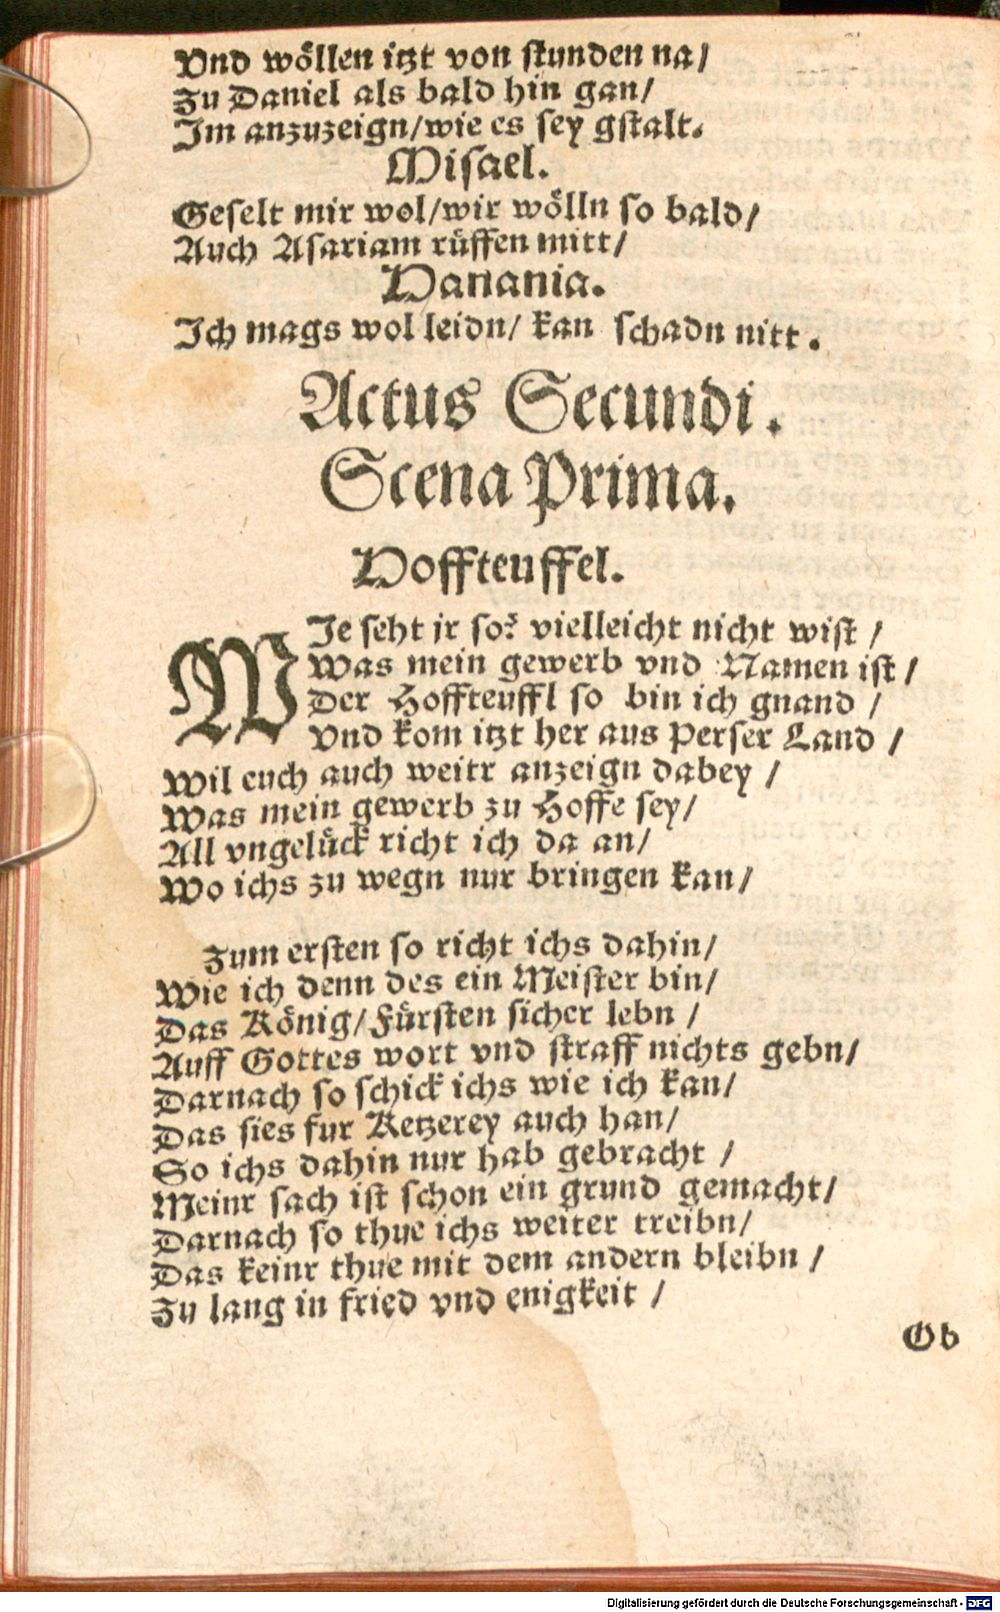 Vnd wöllen itzt von stunden na/
Zu Daniel als bald hin gan/
Im anzuzeign/wie es sey gstalt.
Misael.
Geselt mir wol/wir wölln so bald/
Auch Asariam rüffen mitt/
Hanania.
Ich mags wol leidn/ kan schadn nitt.
Actus Secundi.
Scena Prima.
Hoffteuffel.
WIe seht jr so? vielleicht nicht wist /
Was mein gewerb vnd Namen ist /
Der Hoffteuffl so bin ich gnand /
Vnd kom itzt her aus Perser Land /
Wil euch auch weitr anzeign dabey /
Was mein gewerb zu Hoffe sey/
All vngelück richt ich da an/
Wo ichs zu wegn nur bringen kan/
Zum ersten so richt ichs dahin/
Wie ich denn des ein Meister bin/
Das König/Fürsten sicher lebn /
Auff Gottes wort vnd straff nichts gebn/
Darnach so schick ichs wie ich kan/
Das sies fur Ketzerey auch han/
So ichs dahin nur hab gebracht /
Meinr sach ist schon ein grund gemacht/
Darnach so thue ichs weiter treibn/
Das keinr thue mit dem andern bleibn /
Zu lang in fried vnd enigkeit /
Ob
Digitalisierung gefördert durch die Deutsche Forschungsgemeinschaft - DFG